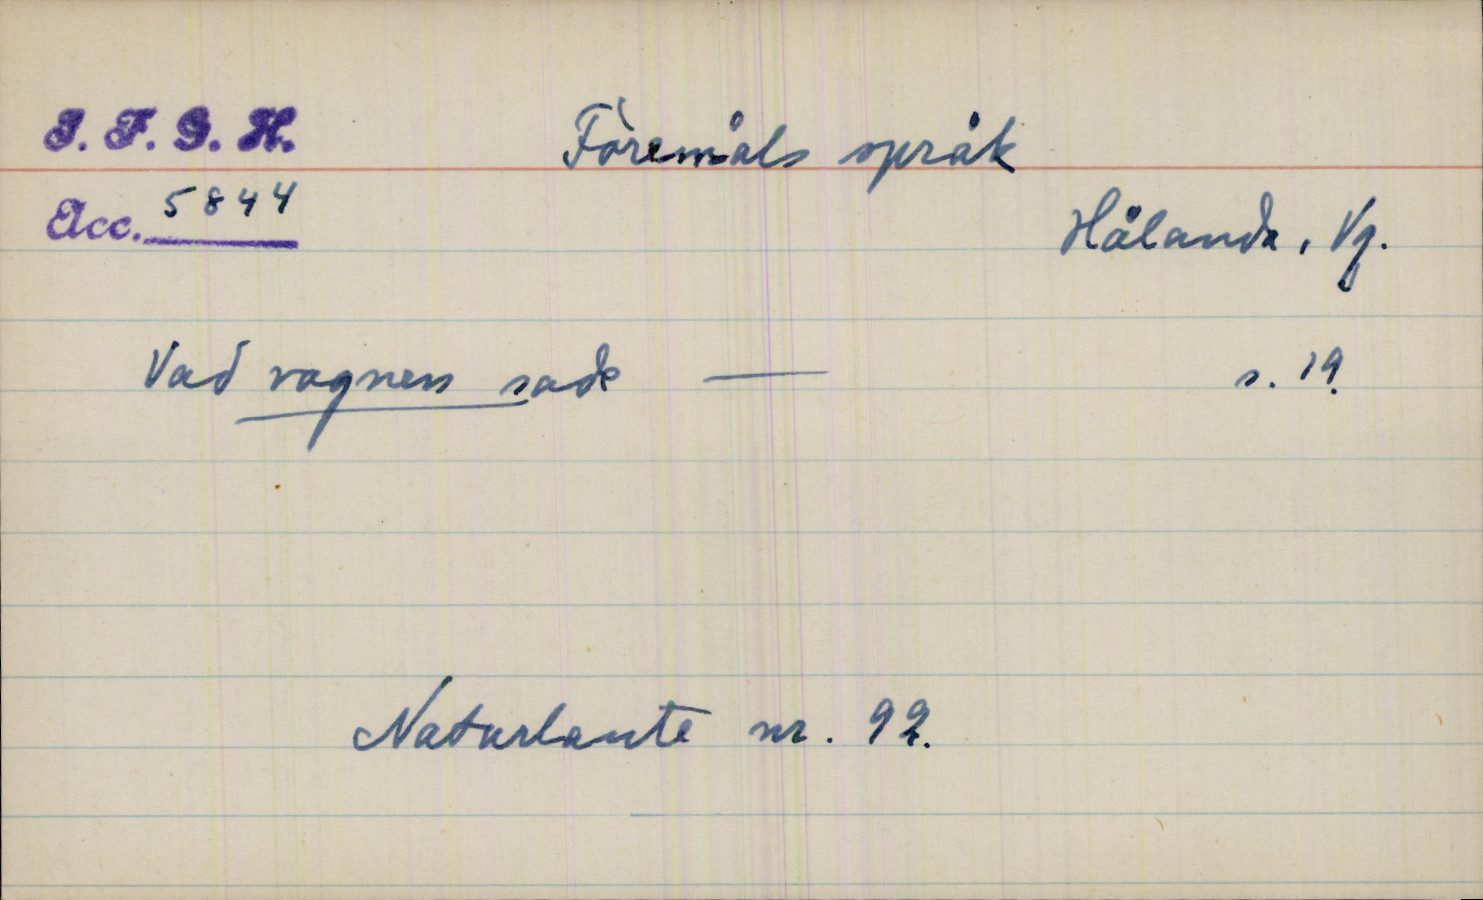 I. F. G. H.
Föremåls språk
Acc. 5844
Hålanda, Vg.
Vad vagnen sade — s. 19.
Naturlaute nr. 92.